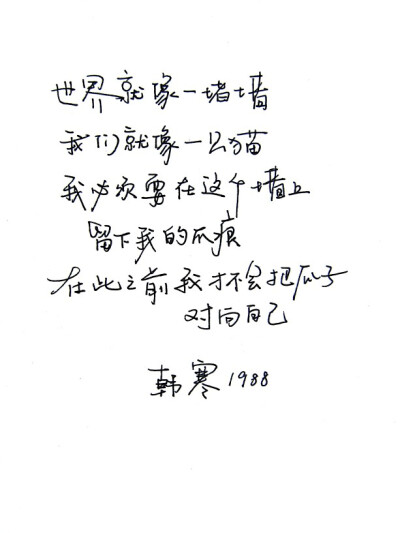 世界就像一堵墙
我们就像一只猫
我必须要在这个墙上
留下我的爪痕
在此之前我才不会把爪子
对向自己
韩寒 1988